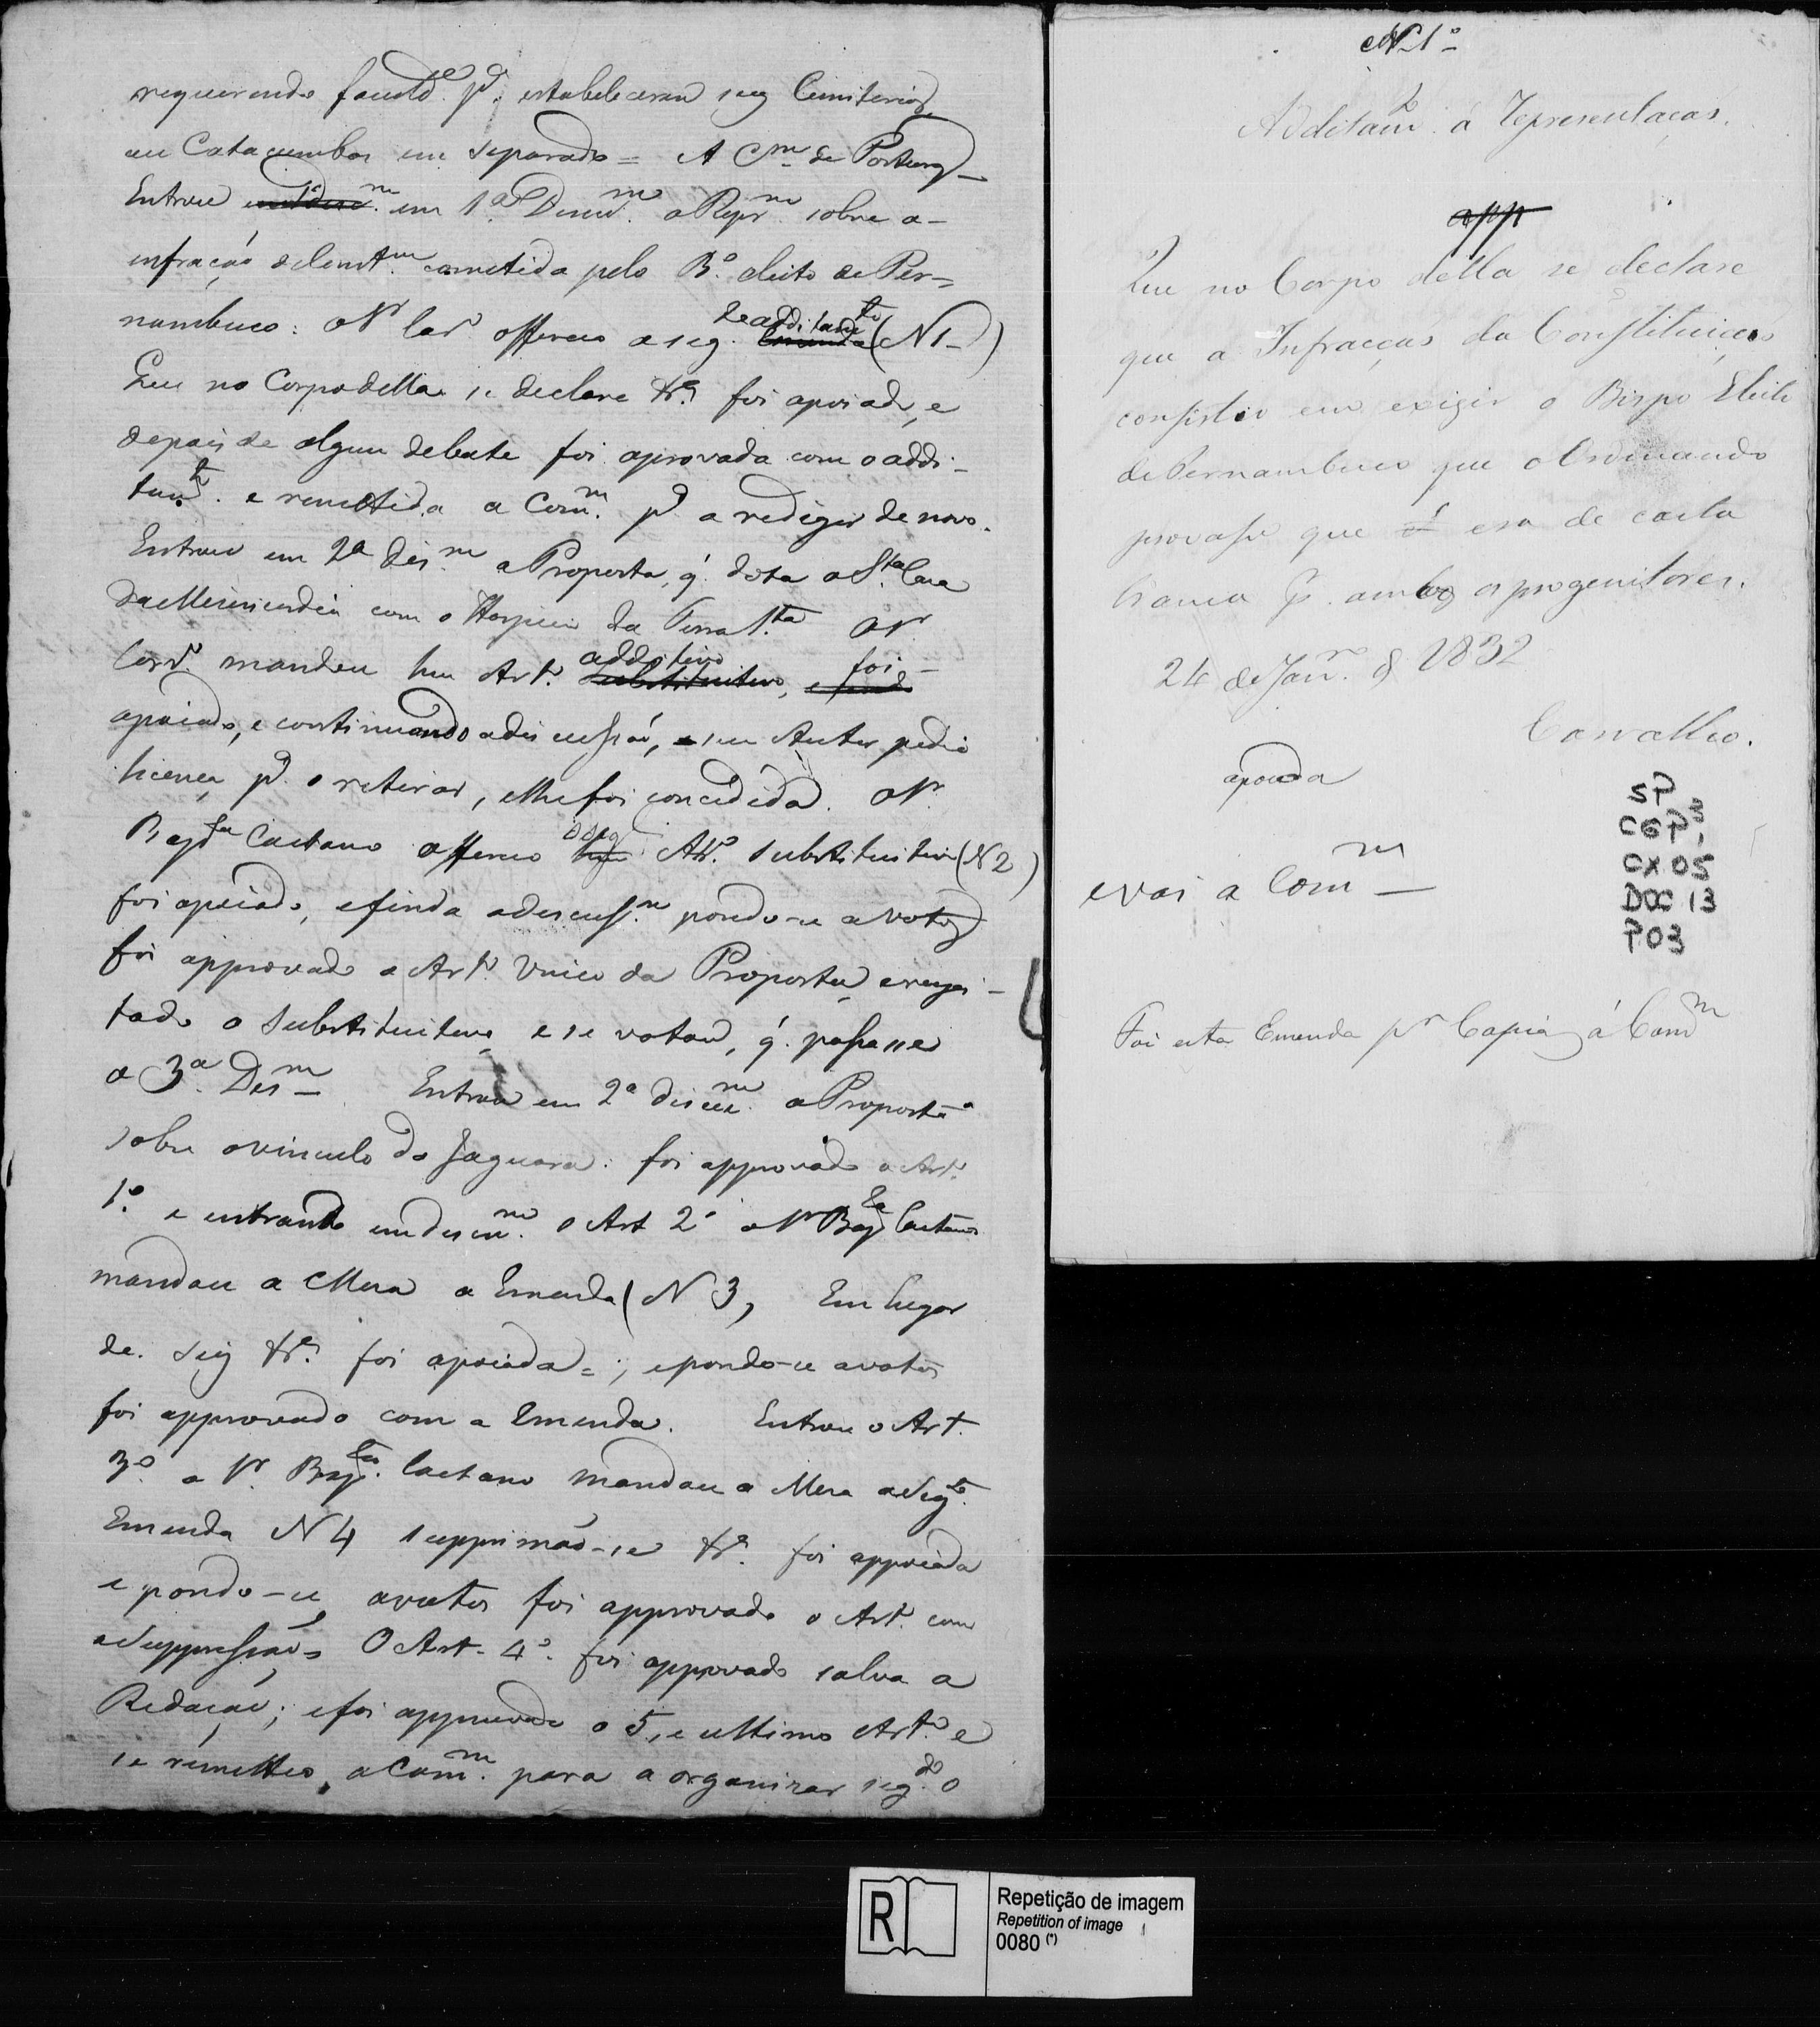 requerendo faculd.e p.a estabelecerem seus Cemiterios
ou Catacumbas em separado = A Cm. de Posturas
Entrou em 1.a Discus.m a Repr.m sobre a
infração da Const.m cometida pelo B.o eleito de Per=
nambuco: O Sr. Carv.o offereceo a seg. additam.to (N 1)
Que no Corpo della se declare &.a foi apoiado, e
depois de algum debate foi aprovada com o addi-
tam.to e remettida a Com.m p.a a redigir de novo.
Entrou em 2.a Dis.m a Proposta, q. dota a S.ta Casa
da Misericordia com o Hospicio da Terra S.ta O Sr.
Carv.o mandou hum Art.o additivo foi
apoiado, e continuando a discussão, seu Autor pedio
licença p.a o retirar, e lhe foi concedida. O Sr.
Bap.ta Caetano offereceo o seg Art.o substitutivo (N 2)
foi apoiado, e finda a discuss.m pondo-se a votos
foi approvado o Art.o Unico da Proposta, e regei-
tado o substitutivo e se votou, q. passasse
a 3.a Dis.m Entrou em 2.a discus.m a Proposta
sobre o vinculo do Jaguara: foi approvado o Art.o
1.o e entrando em discus.m o Art 2.o o Sr Bap.ta Caetano
mandou a Mesa a Emenda (N 3, Em lugar
de seis &.a foi apoiada =, e pondo-se a votos
foi approvado com a Emenda. Entrou o Art.
3.o o Sr. Bap.ta Caetano mandou a Mesa a Seg.te
Emenda N 4 supprimão-se &.a foi appoiada
e pondo-se a votos foi approvado o Art.o com
a suppressão = O Art. 4.o foi approvado salva a
Redação; e foi approvado o 5, e ultimo Art.o e
se remetteo, a Com.m para a organizar seg.do o
N 1.o
Additam.to á Representação.
app
Que no Corpo della se declare
que a Infracção da Constituição
consistio em exigir o Bispo Eleito
de Pernambuco que o Ordinando
provasse que era de casta
branca p. ambos os progenitores.
24 de Jan.ro de 1832
Carvalho.
apoiada
e vai a Com.m
SP
CGP3,
CX 05
DOC 13
P03
Foi esta Emenda p.r Copia á Com.m
R
Repetição de imagem
Repetition of image
0080 (*)